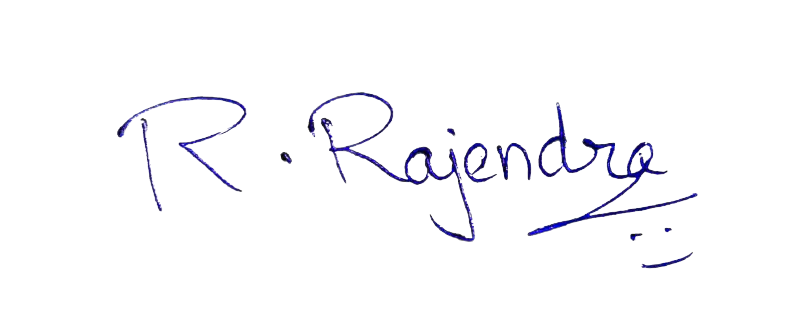 R. Rajendra